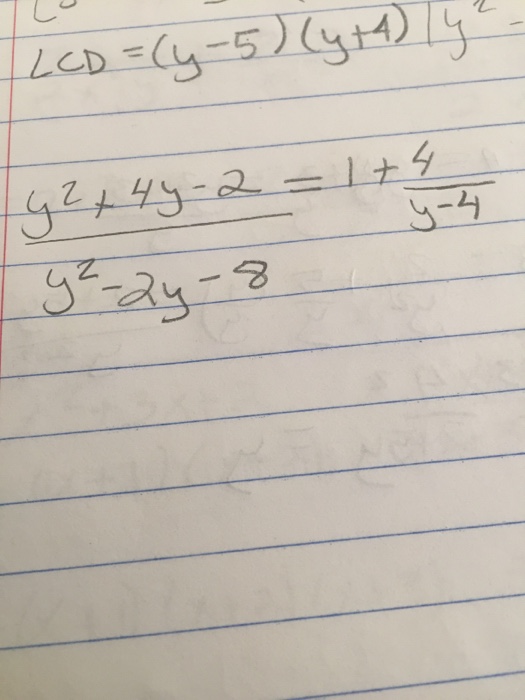 LCD = (y-5)(y+4) | y² -
y² + 4y - 2 = 1 + 4
y² - 2y - 8 y-4